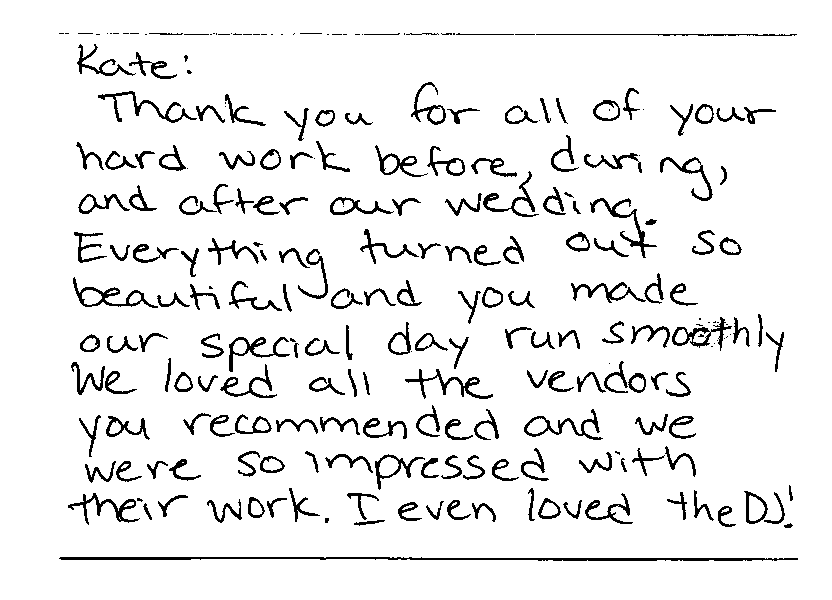 Kate:
Thank you for all of your
hard work before, during,
and after our wedding.
Everything turned out so
beautiful and you made
our special day run smoothly
We loved all the vendors
you recommended and we
were so impressed with
their work. I even loved the DJ!